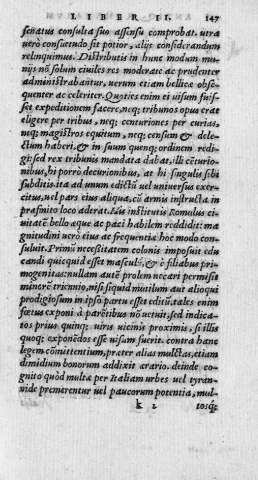 LIBER II. 147
senatus consulta suo assensu comprobat. utra
uero consuetudo sit potior, alijs considerandum
relinquimus. Distributis in hunc modum mu-
nijs nō solum ciuiles res moderate ac prudenter
administrabantur, uerum etiam bellicæ obse-
quenter ac celeriter. Quoties enim ei uisum fuis-
set expeditionem facere, neq; tribunos opus erat
eligere per tribus, neq; centuriones per curias,
neq; magistros equitum, neq; censum & dele-
ctum haberi, & in suum quenq; ordinem redi-
gi: sed rex tribunis mandata dabat, illi cēturio-
nibus, hi porrò decurionibus, at hi singulis sibi
subditis. ita ad unum edictū uel uniuersus exer-
citus, uel pars eius aliqua, cū armis instructa in
præfinito loco aderat. His institutis Romulus ci-
uitatē bello aque ac paci habilem reddidit: ma
gnitudini uerò eius ac frequentiæ hoc modo con-
suluit. Primū necessitatem colonis imposuit edu
candi quicquid esset masculū, & è filiabus pri-
mogenitas: nullam autē prolem necari permisit
minorē triennio, nisi siquid mutilum aut alioqui
prodigiosum in ipso partu esset editū. tales enim
fœtus exponi à parētibus nō uetuit, sed indica-
tos prius quinq; uiris uicinis proximis, si illis
quoq; exponēdos esse uisum fuerit. contra hanc
legem cōmittentium, præter alias mulctas, etiam
dimidium bonorum addixit ærario. deinde co-
gnito quòd multæ per Italiam urbes uel tyran-
nide premerentur uel paucorum potentia, mul-
k 2 tosq;